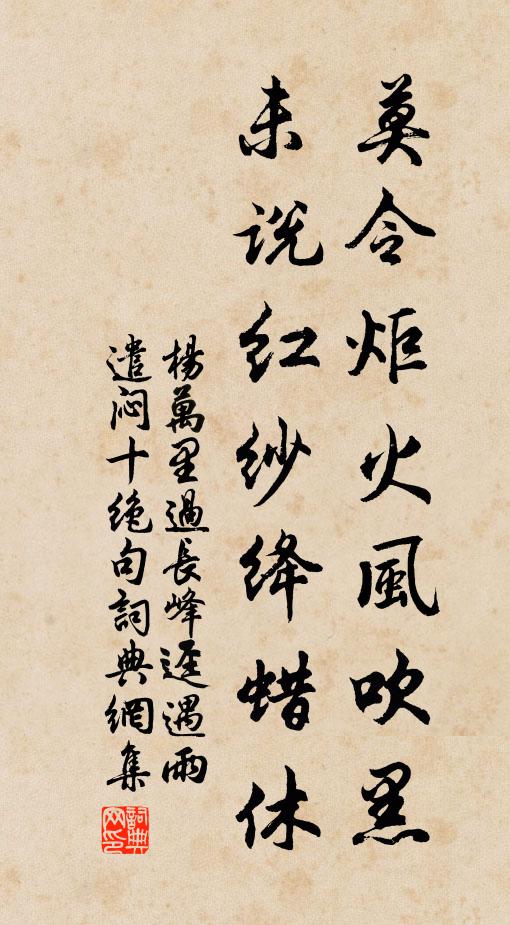 莫令炬火風吹黑
未说红纱绛蜡休
楊萬里過長峰逕遇雨
遣闷十绝句詞典網集
詞典网印